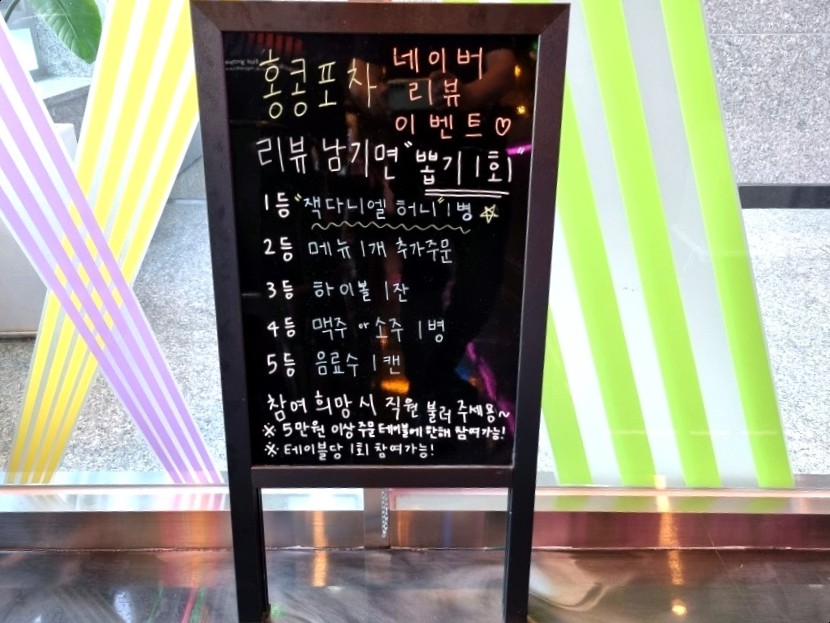 홍콩포차 네이버
리뷰
이벤트♡
리뷰 남기면 "뽑기 1회"
1등 "잭다니엘 허니" 1병 ☆
2등 메뉴 1개 추가주문
3등 하이볼 1잔
4등 맥주 or 소주 1병
5등 음료수 1캔
참여 희망 시 직원 불러 주세용~
※ 5만원 이상 주문 테이블에 한해 참여가능!
※ 테이블당 1회 참여가능!